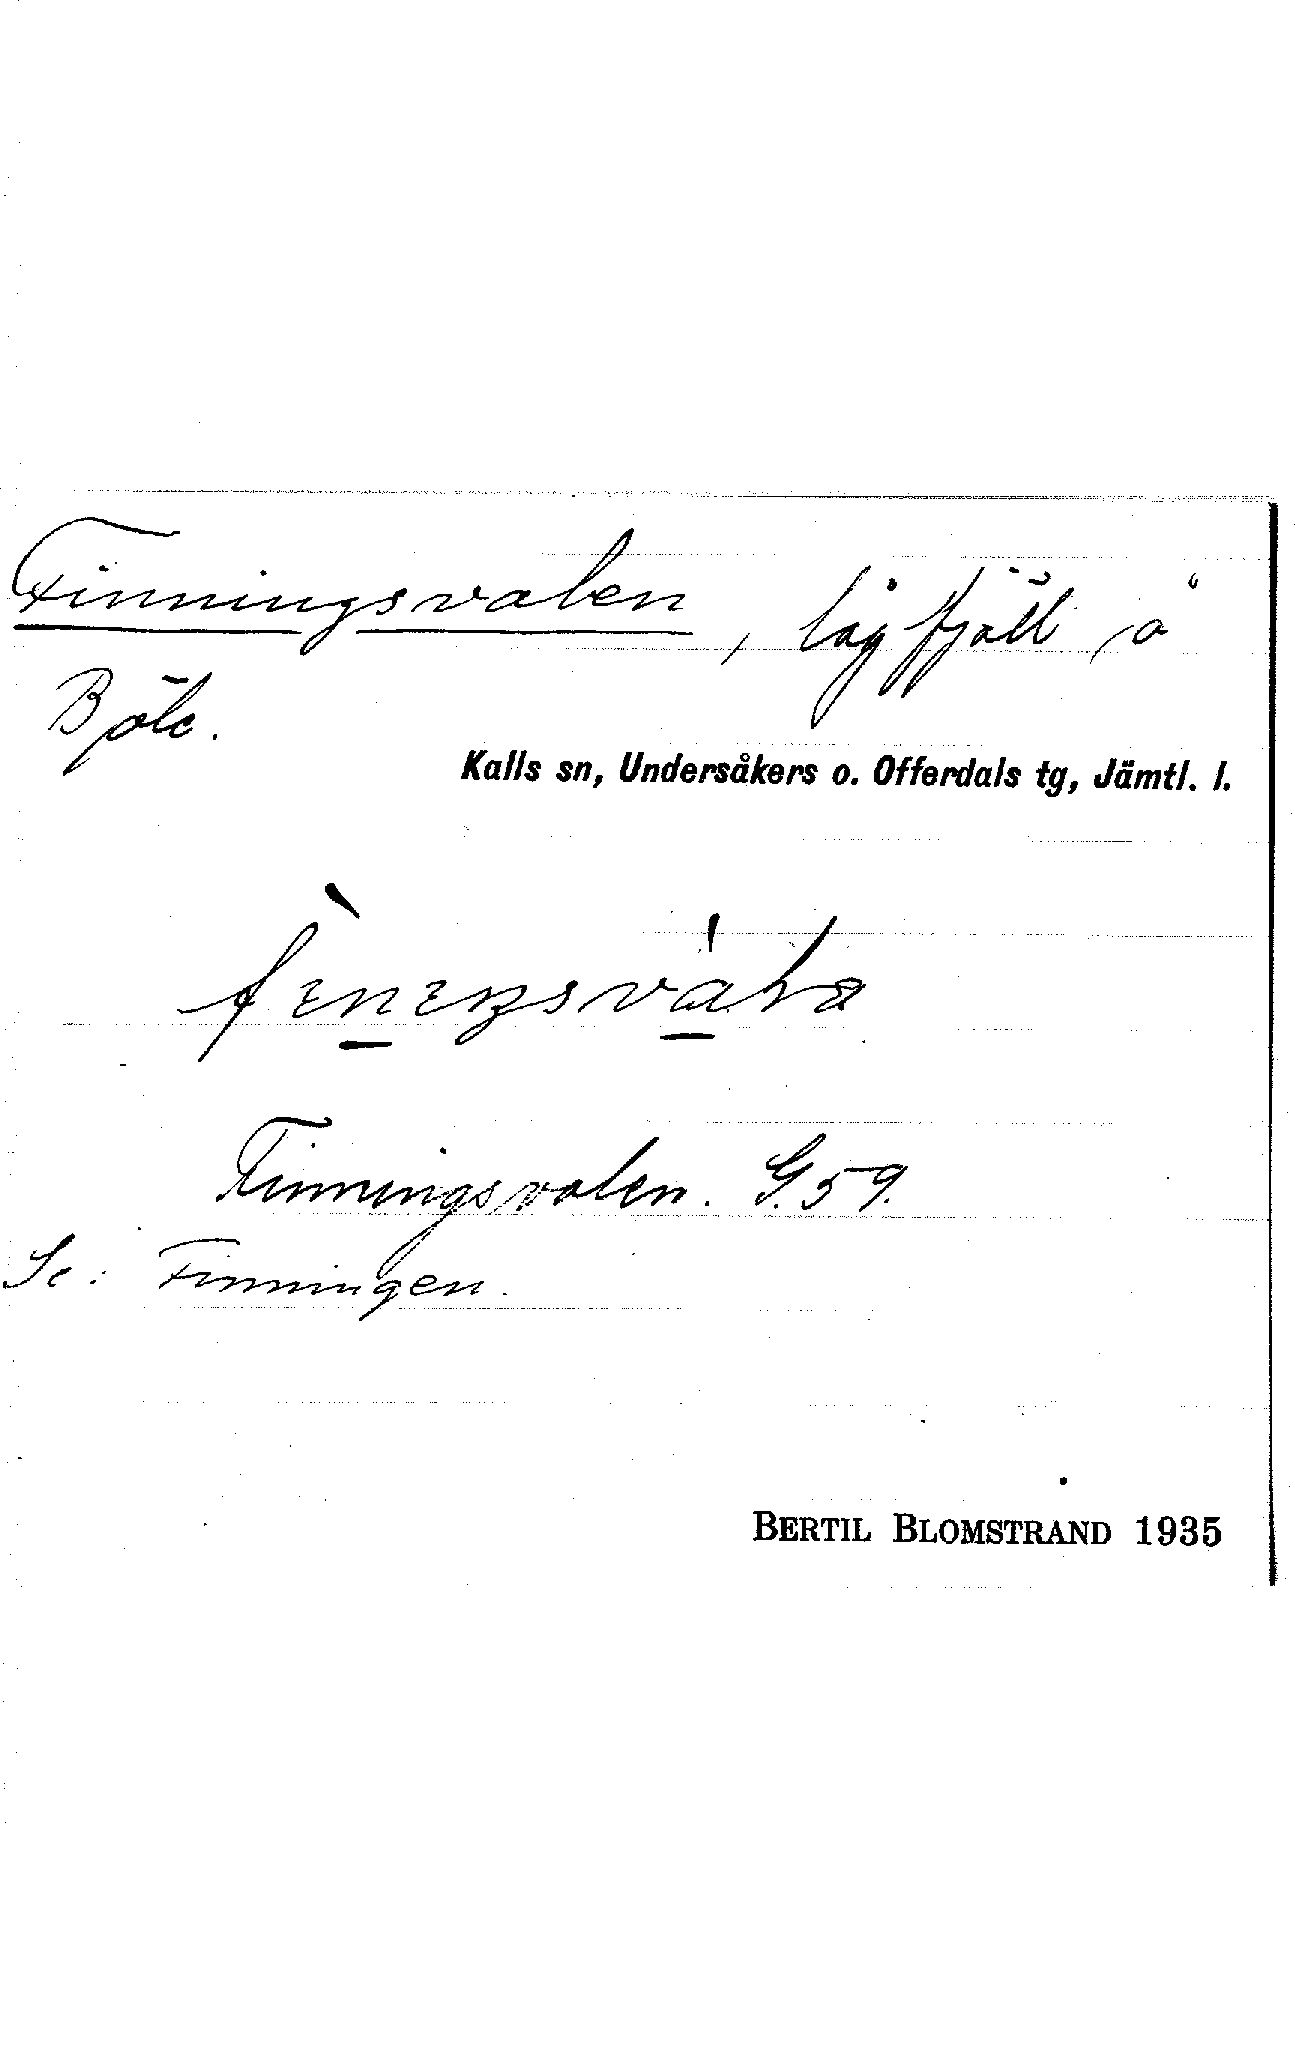 Finningsvalen, lågfjäll å
Bjäle.
Kalls sn, Undersåkers o. Offerdals tg, Jämtl. l.
Finningsvalen. G. 59.
Se: Finningen.
BERTIL BLOMSTRAND 1935